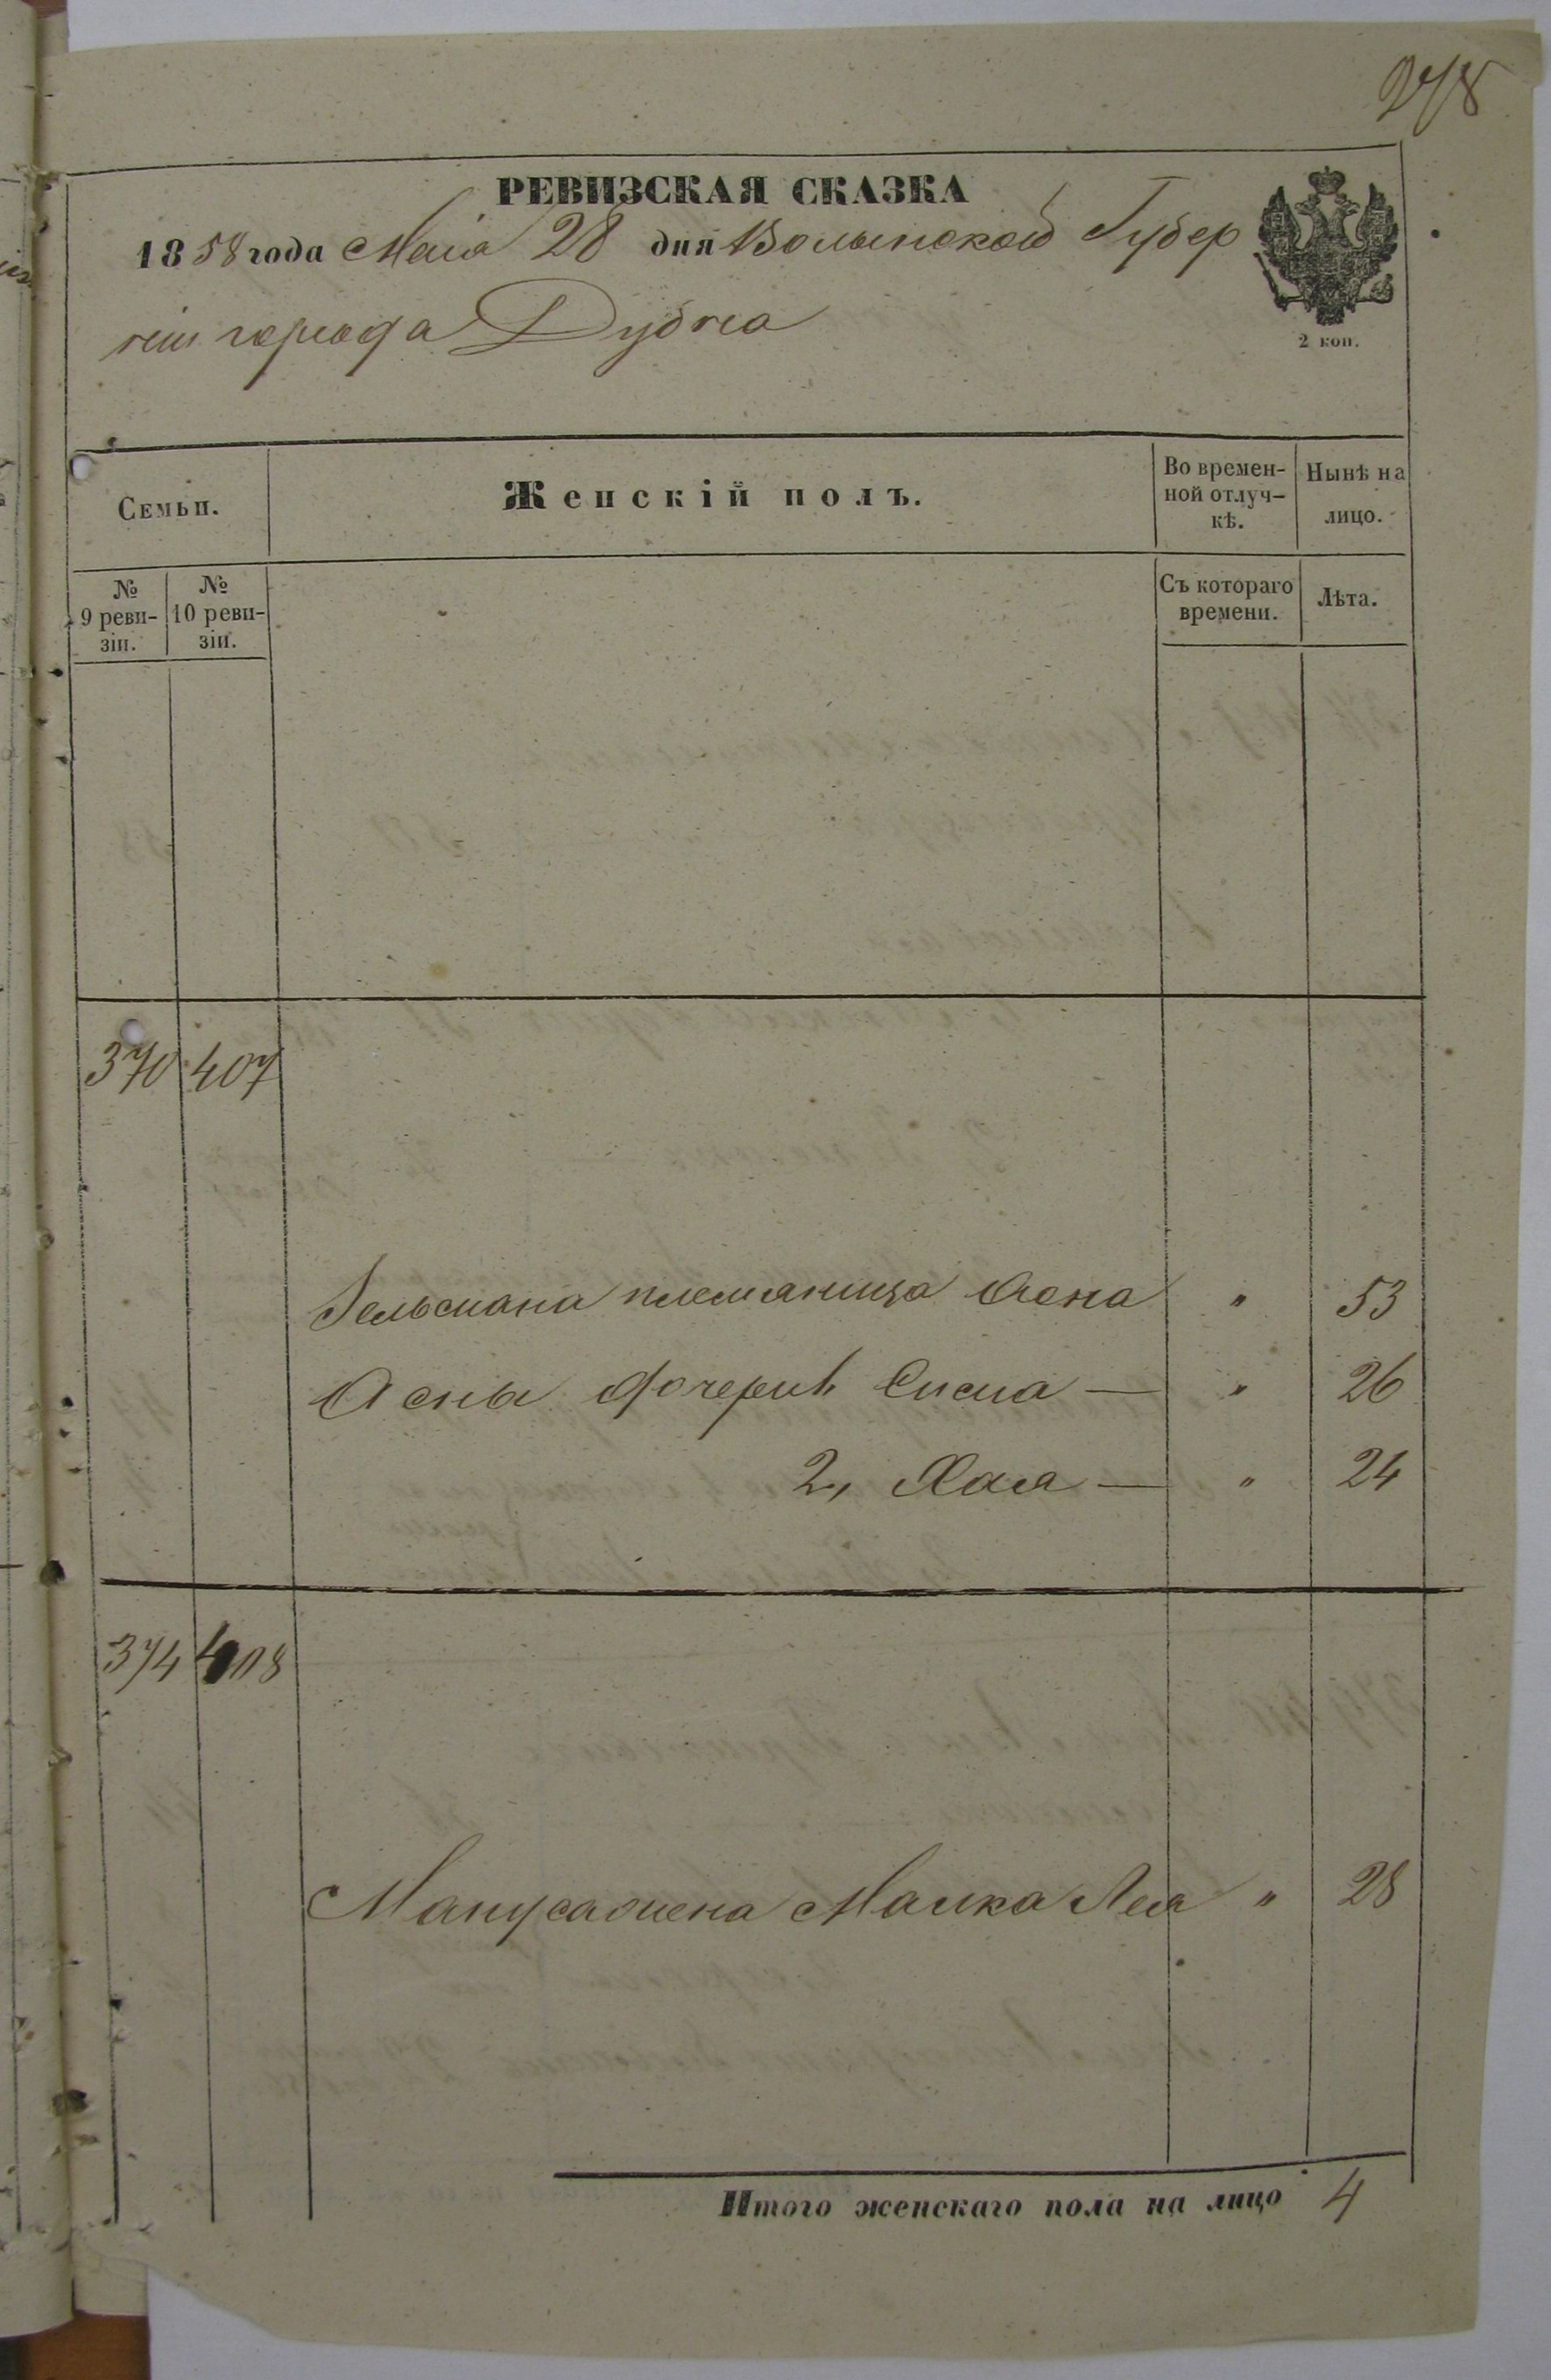 278
РЕВИЗСКАЯ СКАЗКА
1858 года Маія 28 дня Волынской Губер
ніи города Дубна
2 коп.
Семьи.
Женскій полъ.
Во времен-
ной отлуч-
кѣ.
Нынѣ на
лицо.
№
9 реви-
зіи.
№
10 реви-
зіи.
Съ котораго
времени.
Лѣта.
370 407
Зельмана племяница Асна " 53
Асны дочери 1, Сисиа — " 26
2, Хая — " 24
374 408
Мануса жена Малка Лея " 28
Итого женскаго пола на лицо 4